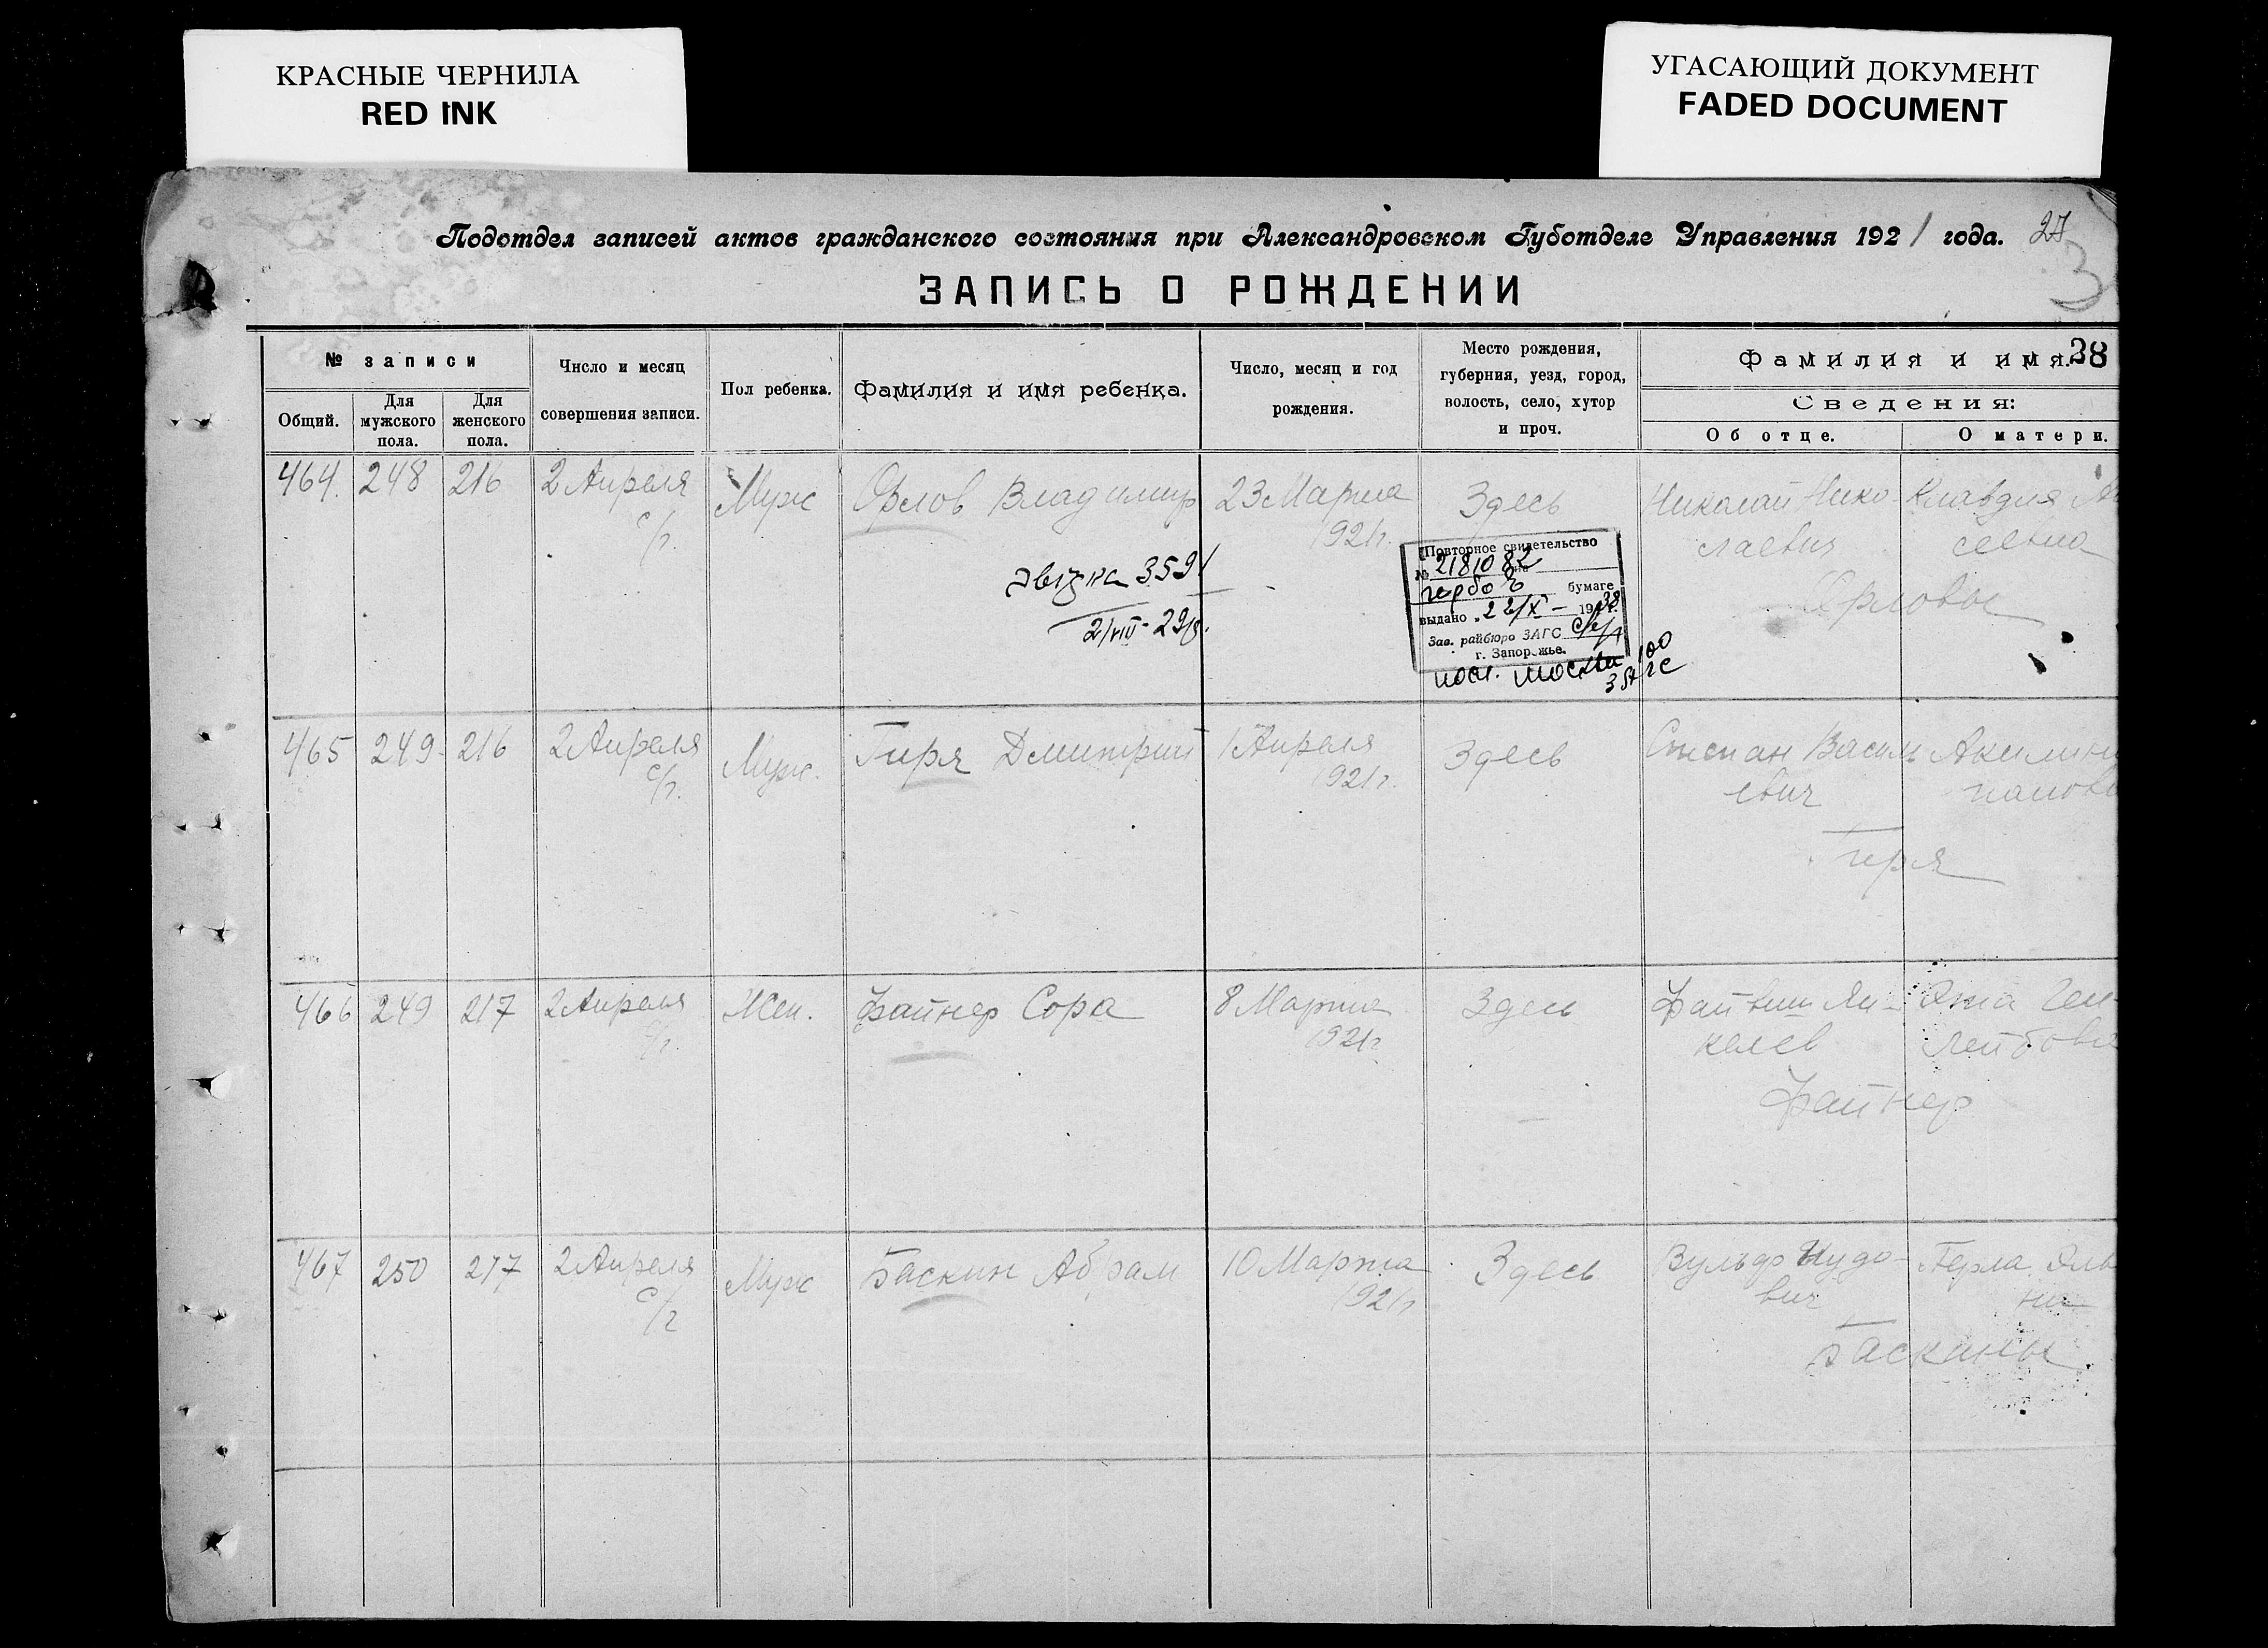 КРАСНЫЕ ЧЕРНИЛА
RED INK
УГАСАЮЩИЙ ДОКУМЕНТ
FADED DOCUMENT
Подотдел записей актов гражданского состояния при Александровском Губотделе Управления 1921 года. 27
3
ЗАПИСЬ О РОЖДЕНИИ
№ записи
Общий.
Для мужского пола.
Для женского пола.
Число и месяц
совершения записи.
Пол ребенка.
Фамилия и имя ребенка.
Число, месяц и год
рождения.
Место рождения,
губерния, уезд, город,
волость, село, хутор
и проч.
Фамилия и имя.
38
Сведения:
Об отце.
О матери.
464. 248 216 2 Апреля Муж Орлов Владимир 23 Марта Здесь Николай Нико- Клавдия
с/г. 1921г. лаевич
Орловы
3591
2/VIII-29г.
Повторное свидетельство
№ 2181082 на
гербов бумаге
выдано "22/X — 1938г.
Зав. райбюро ЗАГС
г. Запорожье.
посл. Москва 100
ЗАГС
465 249 216 2 Апреля Муж. Гиря Дмитрий 1 Апреля Здесь Степан Василь
с/г. 1921г. евич
Гиря
466 249 217 2 Апреля Жен. Файнер Сора 8 Марта Здесь Файвиш Ян-
с/г. 1921г. келев Лейбовн
Файнер
467 250 217 2 Апреля Муж Баскин Абрам 10 Марта Здесь Вульф Иудо- Перла
с/г 1921г вич
Баскины.